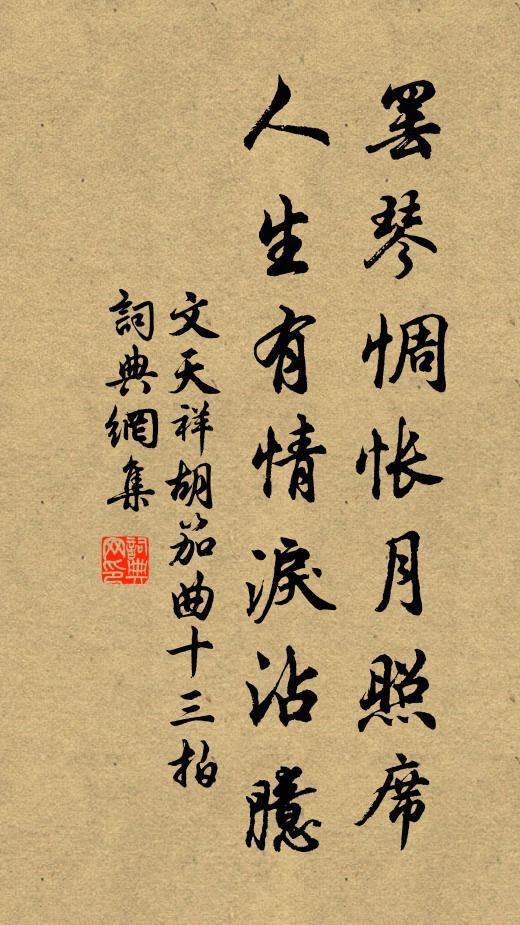 罢琴惆怅月照席
人生有情淚沾臆
文天祥胡笳曲十三拍
詞典網集
詞典网印